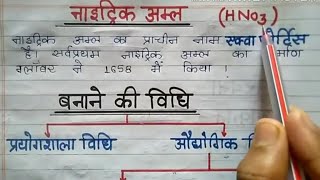 नाइट्रिक अम्ल (HNO3)
नाइट्रिक अम्ल का प्राचीन नाम
है। सर्वप्रथम नाइट्रिक अम्ल का
ग्लॉबर ने 1658 में किया।
बनाने की विधि
प्रयोगशाला विधि औद्योगिक